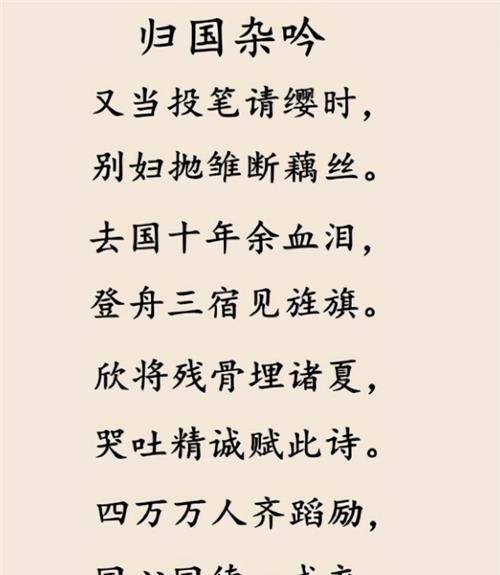 归国杂吟
又当投笔请缨时，
别妇抛雏断藕丝。
去国十年余血泪，
登舟三宿见旌旗。
欣将残骨埋诸夏，
哭吐精诚赋此诗。
四万万人齐蹈励，